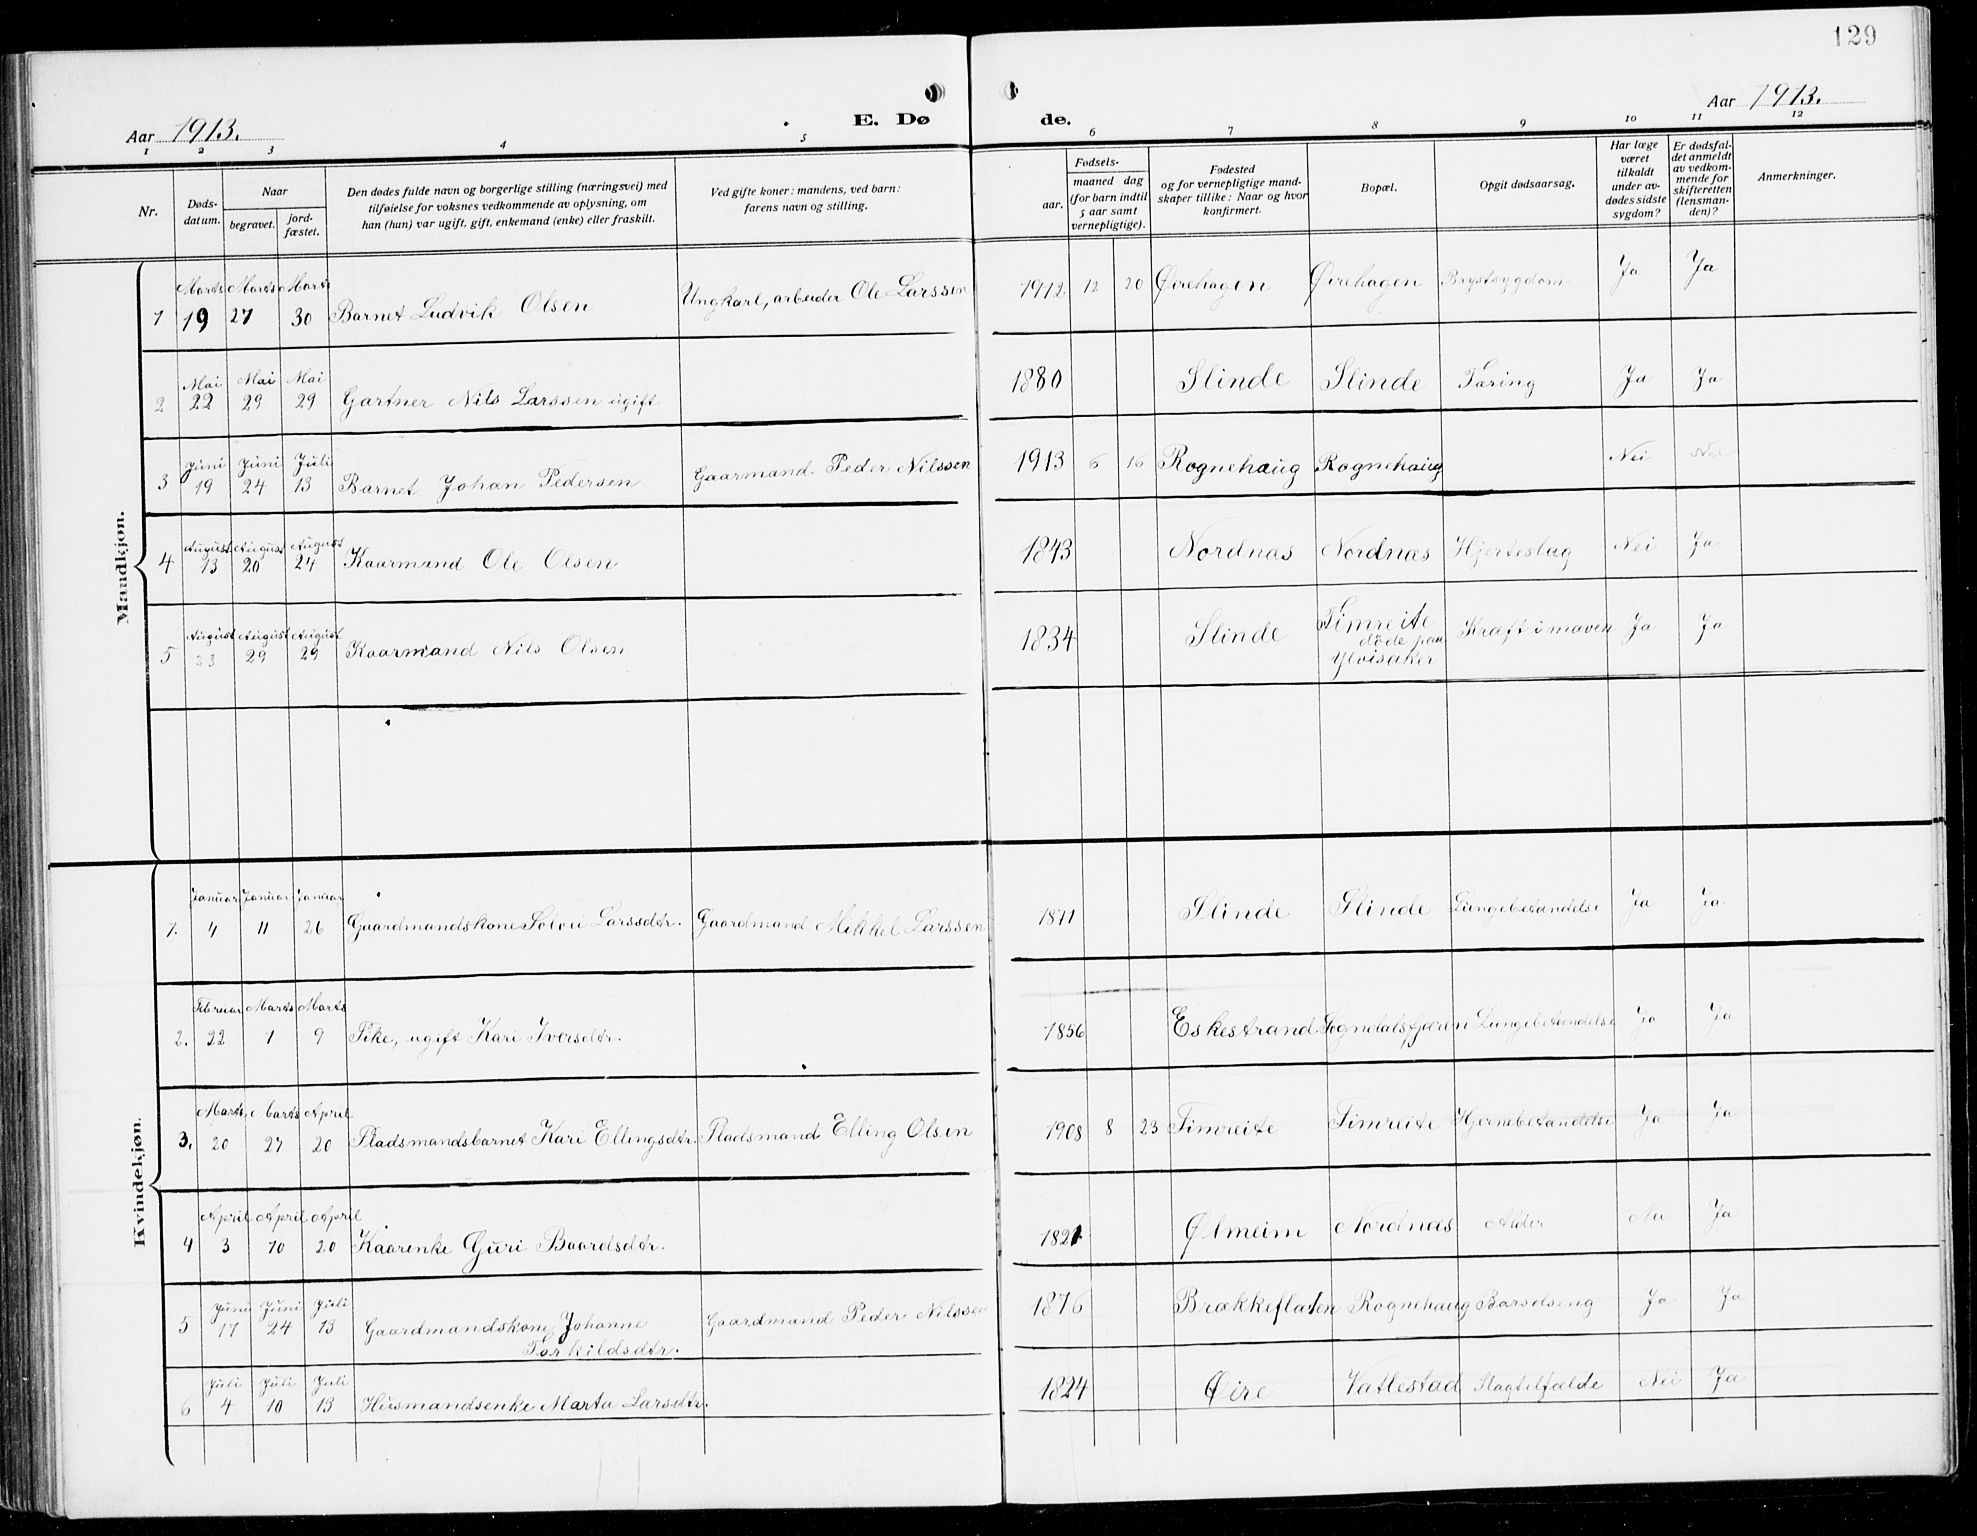 129
Aar 1913.
E. Dø
de.
Aar 1913.
1 2 3 4 5 6 7 8 9 10 11 12
Nr.
Døds-
datum.
Naar
begravet.
jord-
fæstet.
Den dødes fulde navn og borgerlige stilling (næringsvei) med
tilføielse for voksnes vedkommende av oplysning, om
han (hun) var ugift, gift, enkemand (enke) eller fraskilt.
Ved gifte koner: mandens, ved barn:
farens navn og stilling.
aar.
Fødsels-
maaned dag
(for barn indtil
5 aar samt
vernepligtige).
Fødested
og for vernepligtige mand-
skaper tillike: Naar og hvor
konfirmert.
Bopæl.
Opgit dødsaarsag.
Har læge
været
tilkaldt
under av-
dødes sidste
sygdom?
Er dødsfal-
det anmeldt
av vedkom-
mende for
skifteretten
(lensman-
den)?
Anmerkninger.
Mandkjøn.
Marts Marts Marts
1 19 27 30 Barnet Ludvik Olsen Ungkarl, arbeider Ole Larssen 1912 12 20 Øirehagen Øirehagen Brystsygdom Ja Ja
Mai Mai Mai
2 22 29 29 Gartner Nils Larssen ugift 1880 Slinde Slinde Tæring Ja Ja
Juni Juni Juli
3 19 24 13 Barnet Johan Pedersen Gaarmand Peder Nilssen 1913 6 16 Rognehaug Rognehaug Nei Nei
August August August
4 13 20 24 Kaarmand Ole Olsen 1843 Nordnæs Nordnæs Hjerteslag Nei Ja
August August August
5 23 29 29 Kaarmand Nils Olsen 1834 Slinde Timreite
døde paa
Ylvisaker
Kræft i maven Ja Ja
Kvindekjøn.
Januar Januar Januar
1. 4 11 26 Gaardmandskone Solvei Larssdtr. Gaardmand Mikkel Larssen 1871 Slinde Slinde Lungebetændelse Ja Ja
Februar Marts Marts
2. 22 1 9 Pike, ugift Kari Iversdtr. 1856 Eskestrand Sogndalsfjæren Lungebetændelse Ja Ja
Marts Marts April
3. 20 27 20 Pladsmandsbarnet Kari Ellingsdtr. Pladsmand Elling Olsen 1908 8 23 Timreite Timreite Hjernebetændelse Ja Ja
April April April
4 3 10 20 Kaarenke Guri Baardsdtr. 1821 Ølmeim Nordnæs Alder Nei Ja
Juni Juni Juli
5 17 24 13 Gaardmandskone Johanne
Torkildsdtr.
Gaardmand Peder Nilssen 1876 Brækkeflaten Rognehaug Barselseng Ja Ja
Juli Juli Juli
6 4 10 13 Husmandsenke Marta Larsdtr. 1824 Øire Vatlestad Slagtilfælde Nei Ja